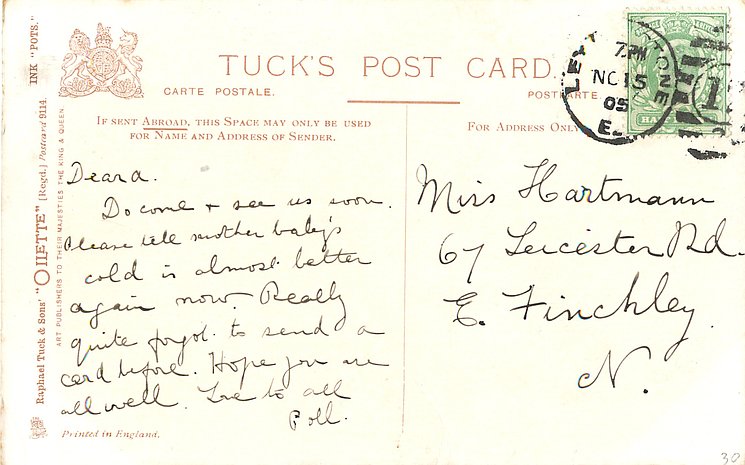 TUCK'S POST CARD.
CARTE POSTALE. POSTKARTE.
IF SENT ABROAD, THIS SPACE MAY ONLY BE USED
FOR NAME AND ADDRESS OF SENDER.
FOR ADDRESS ONLY
INK "POTS."
Raphael Tuck & Sons' "OILETTE" [Regd.] Postcard 9114.
ART PUBLISHERS TO THEIR MAJESTIES THE KING & QUEEN.
Dear a.
Do come + see us soon.
Please tell mother baby's
cold is almost better
again now. Really
quite forgot to send a
card before. Hope you are
all well. Love to all
Poll.
Printed in England.
Miss Hartmann
67 Leicester Rd.
E. Finchley
N.
7 PM
NO 15
05
E.
1
30